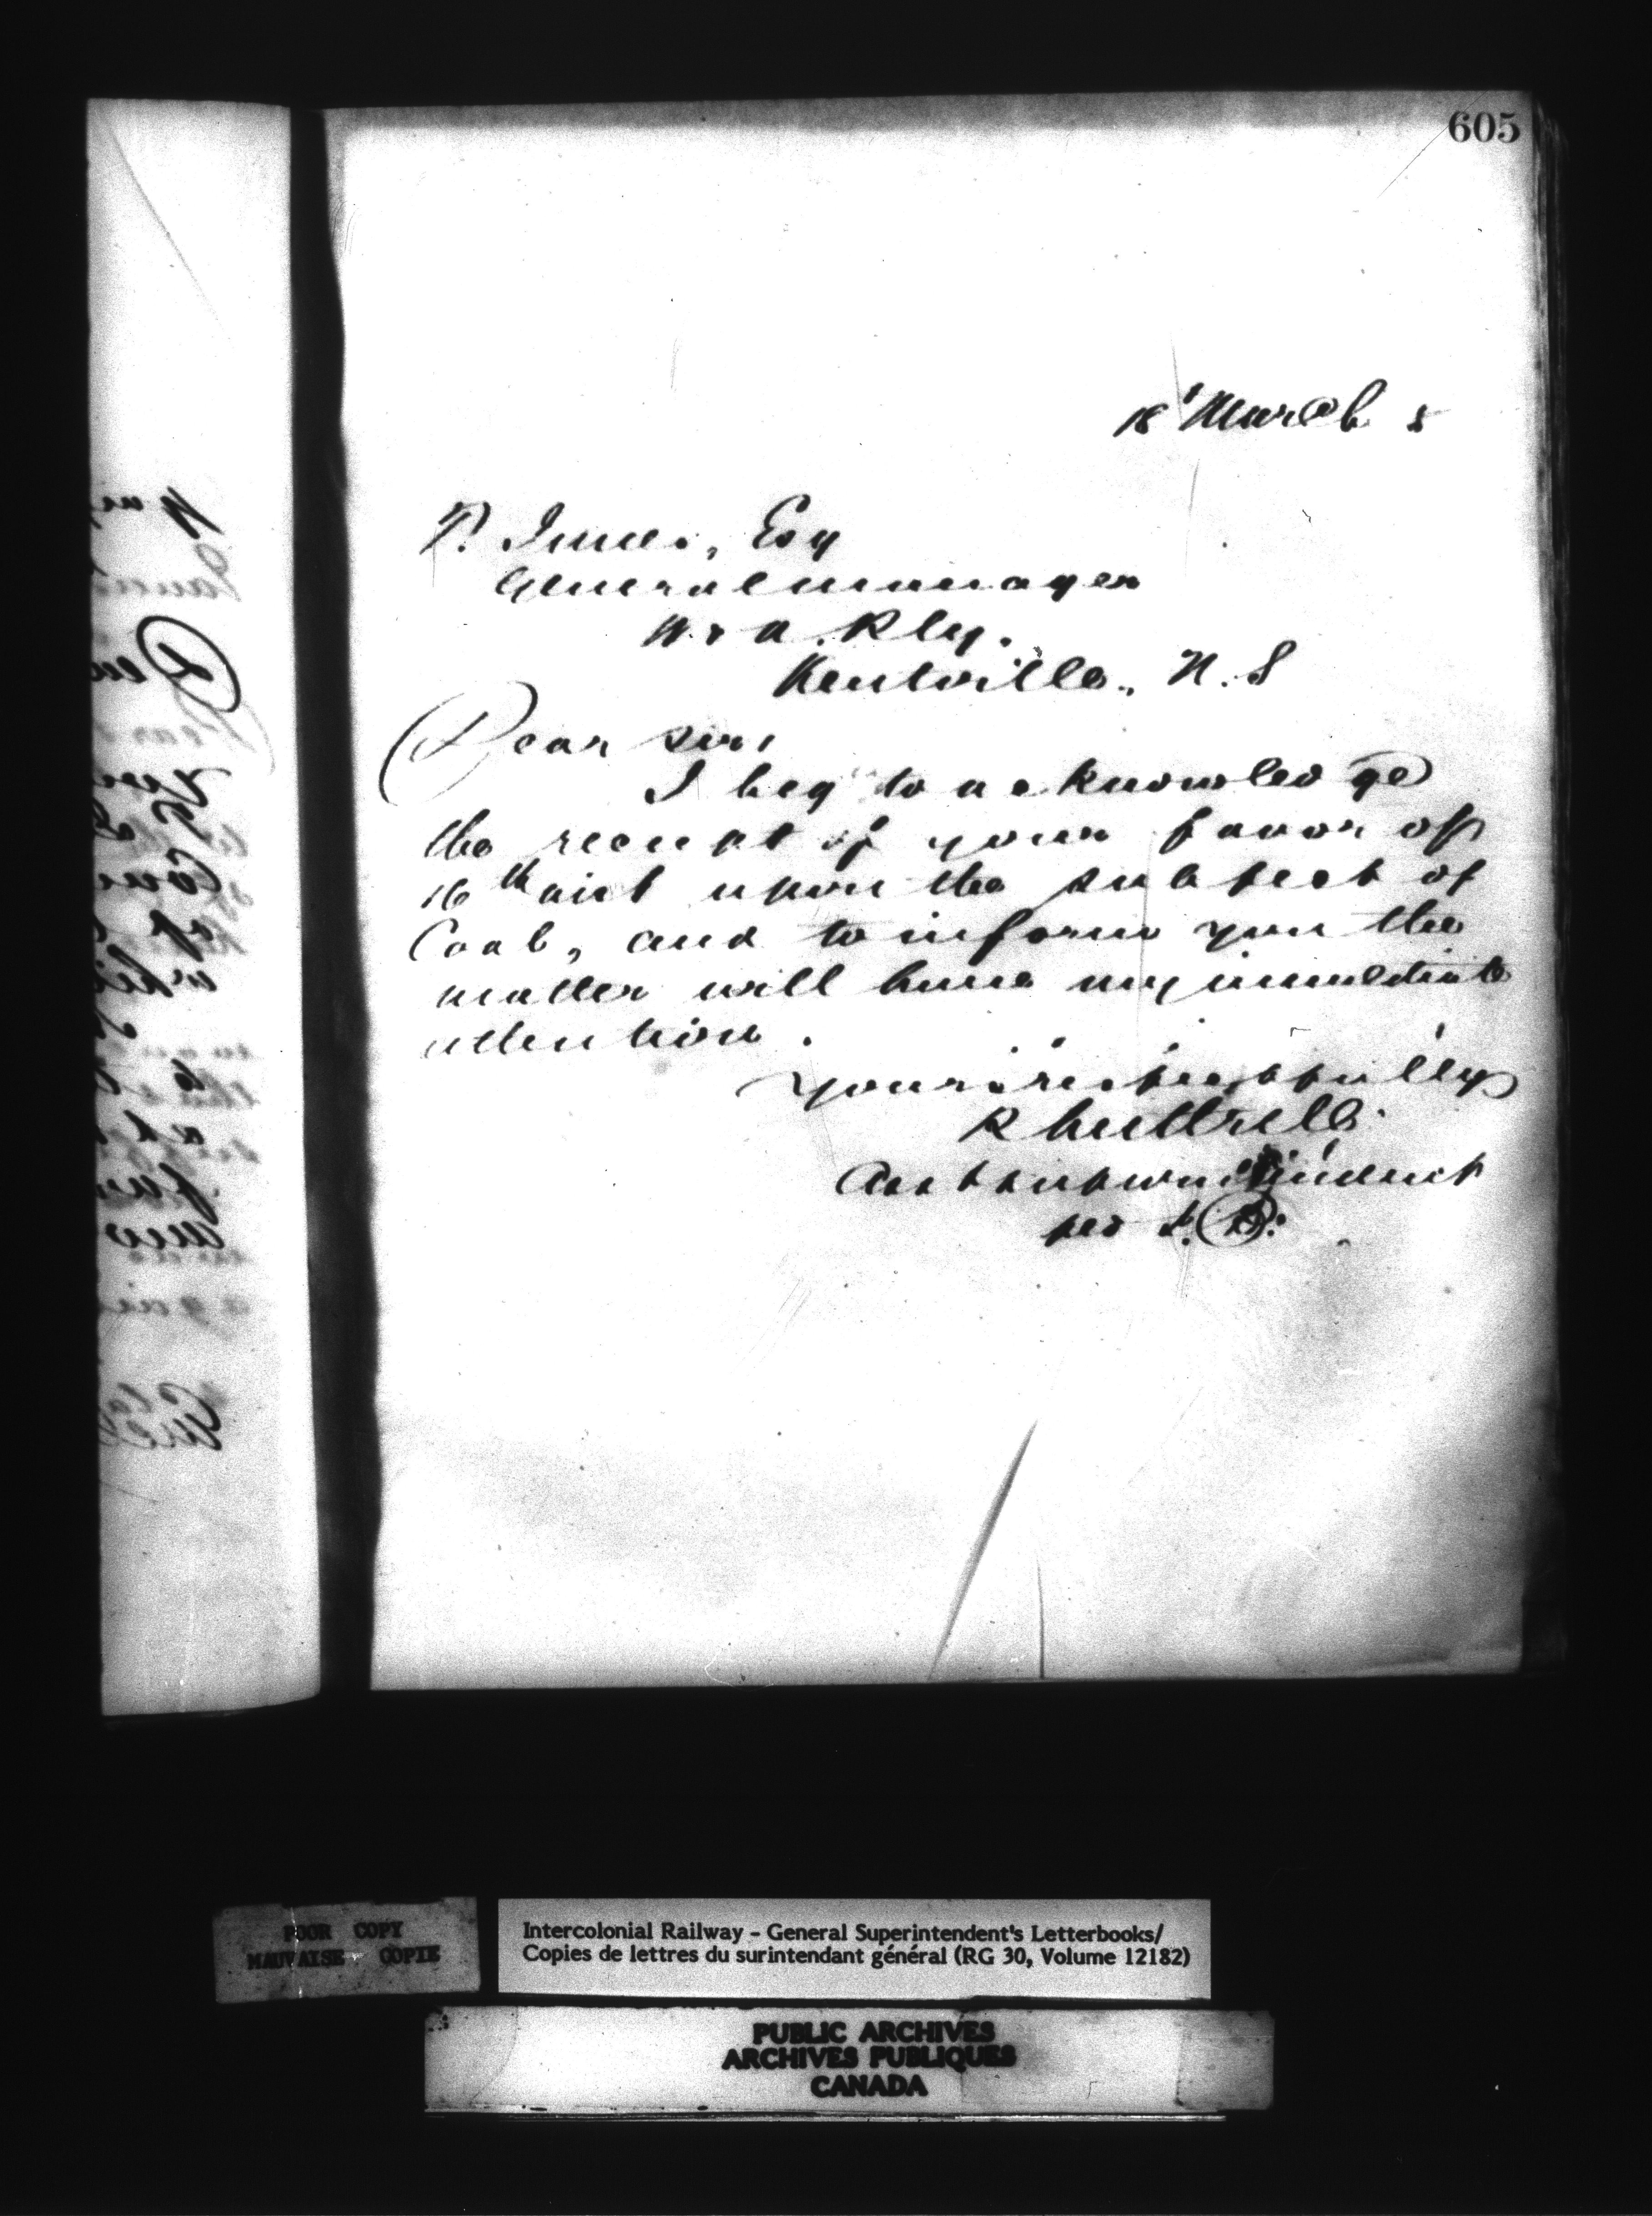 605
18' March 8
P. Innes, Esq
General manager
W. & A. Rly.
Kentville., N.S
Dear Sir,
I beg to acknowledge
the receipt of your favor of
16th inst upon the subject of
Coal, and to inform you the
matter will have my immediate
attention.
Yours respectfully
R Luttrell
Asst Superintendent
per
POOR COPY
MAUVAISE COPIE
Intercolonial Railway - General Superintendent's Letterbooks/
Copies de lettres du surintendant général (RG 30, Volume 12182)
PUBLIC ARCHIVES
ARCHIVES PUBLIQUES
CANADA